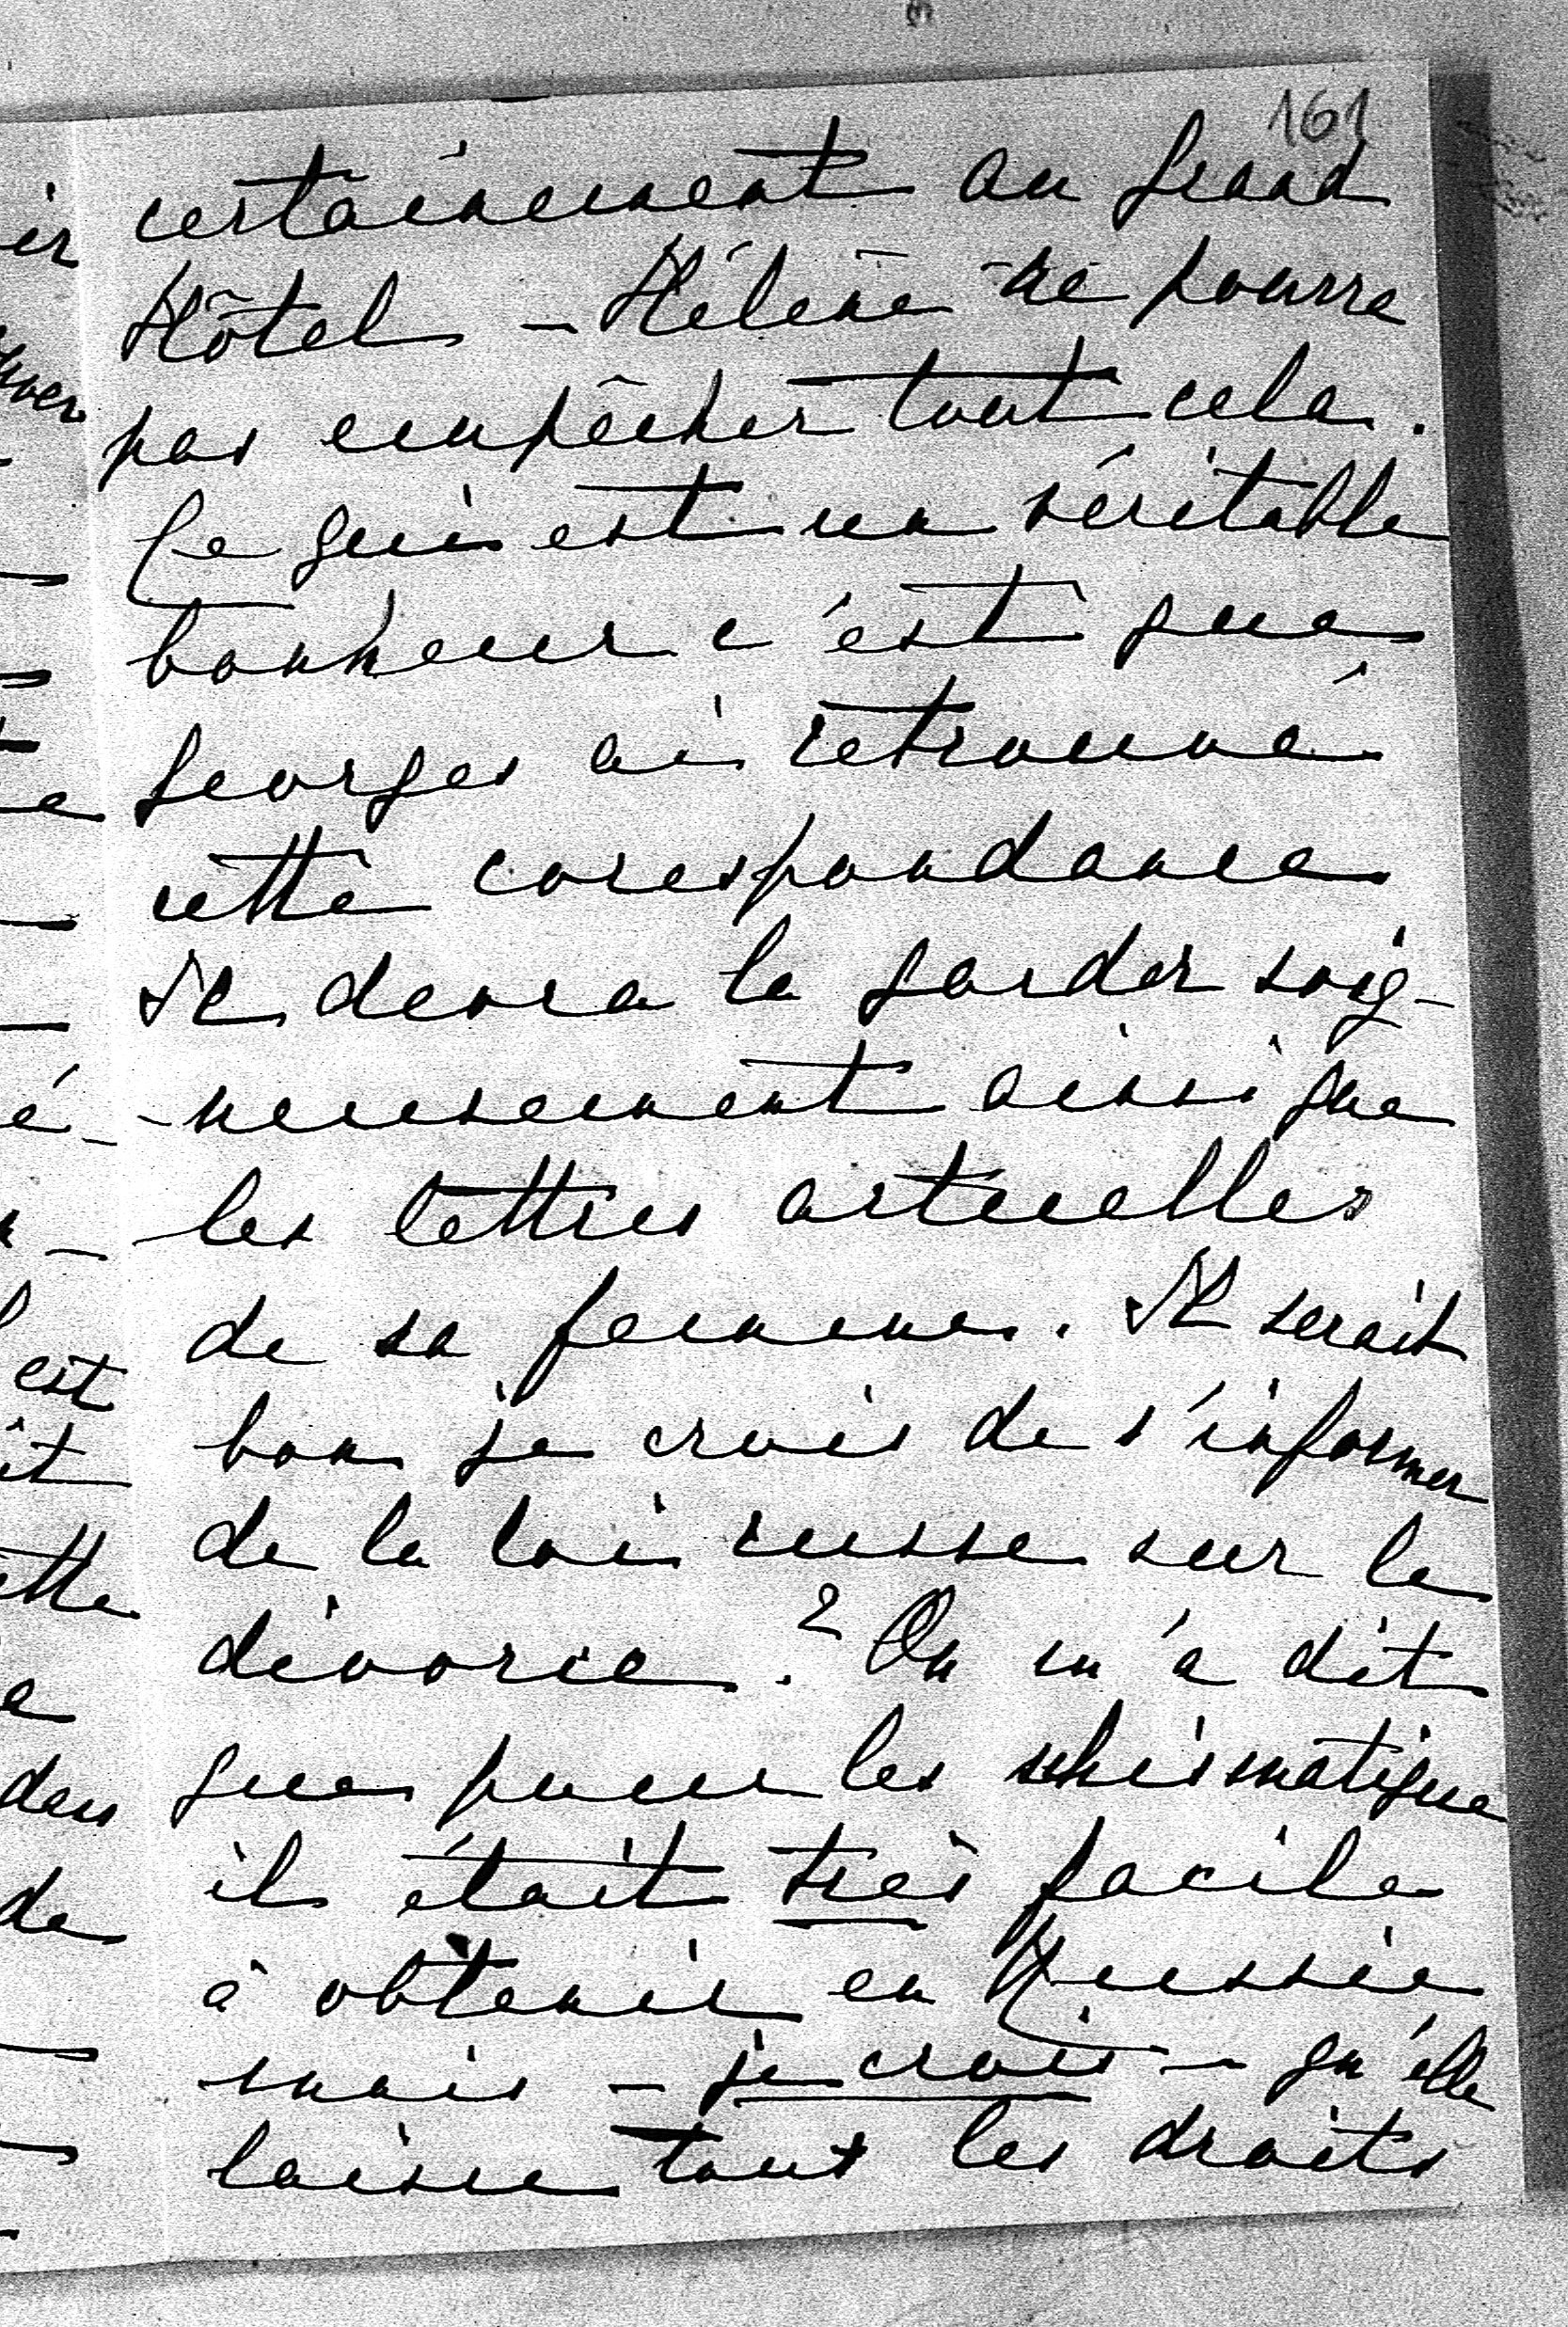 161
certainement au grand
Hôtel – Hélène ne pourra
pas empêcher tout cela.
Ce qui est un véritable
bonheur c'est que
Georges ai retrouvé
cette corespondance
Il devra la garder soig-
-neusement ainsi que
les lettres actuelles
de sa femme. Il serait
bon je crois de s'informer
de la loi russe sur le
divorce. ² On m'a dit
que pour les schismatique
il était très facile
à obtenir en Russie
mais – je crois – qu'elle
laisse tout les droits